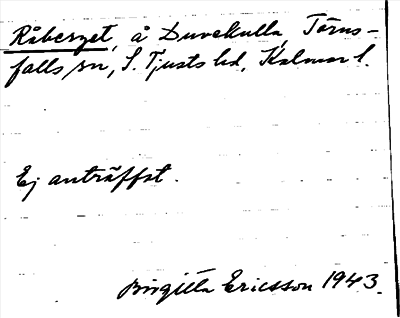 Råberget, å Duvekulla, Törns-
falls sn, S. Tjusts hd, Kalmar l.
Ej anträffat.
Birgitta Ericsson 1943.